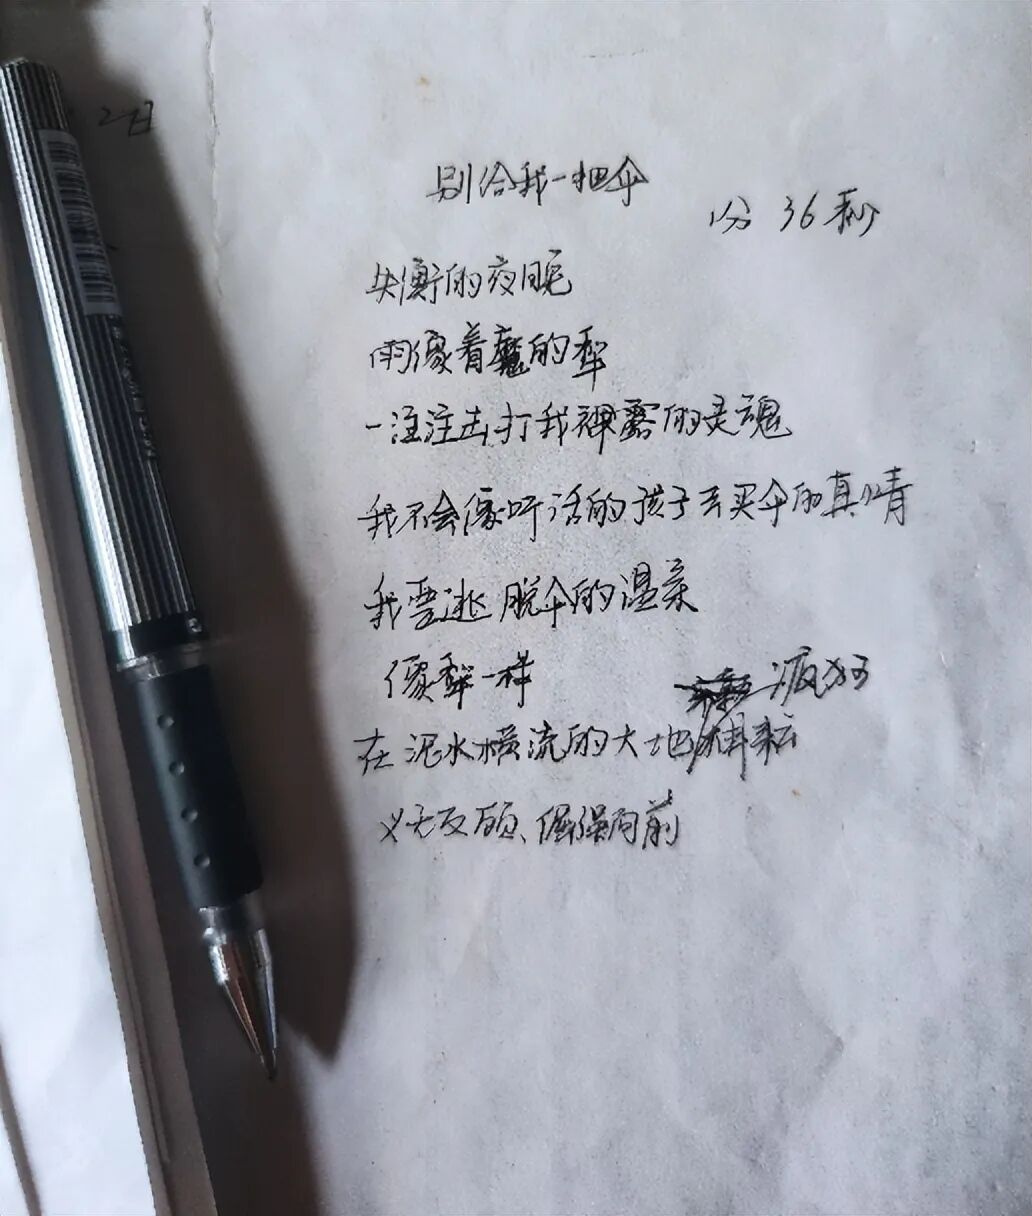 别给我一把伞
1分36秒
失衡的夜晚
雨像着魔的犁
一注注击打我裸露的灵魂
我不会像听话的孩子去买伞的真情
我要逃脱伞的温柔
像犁一样
疯狂
在泥水横流的大地耕耘
义无反顾、倔强向前